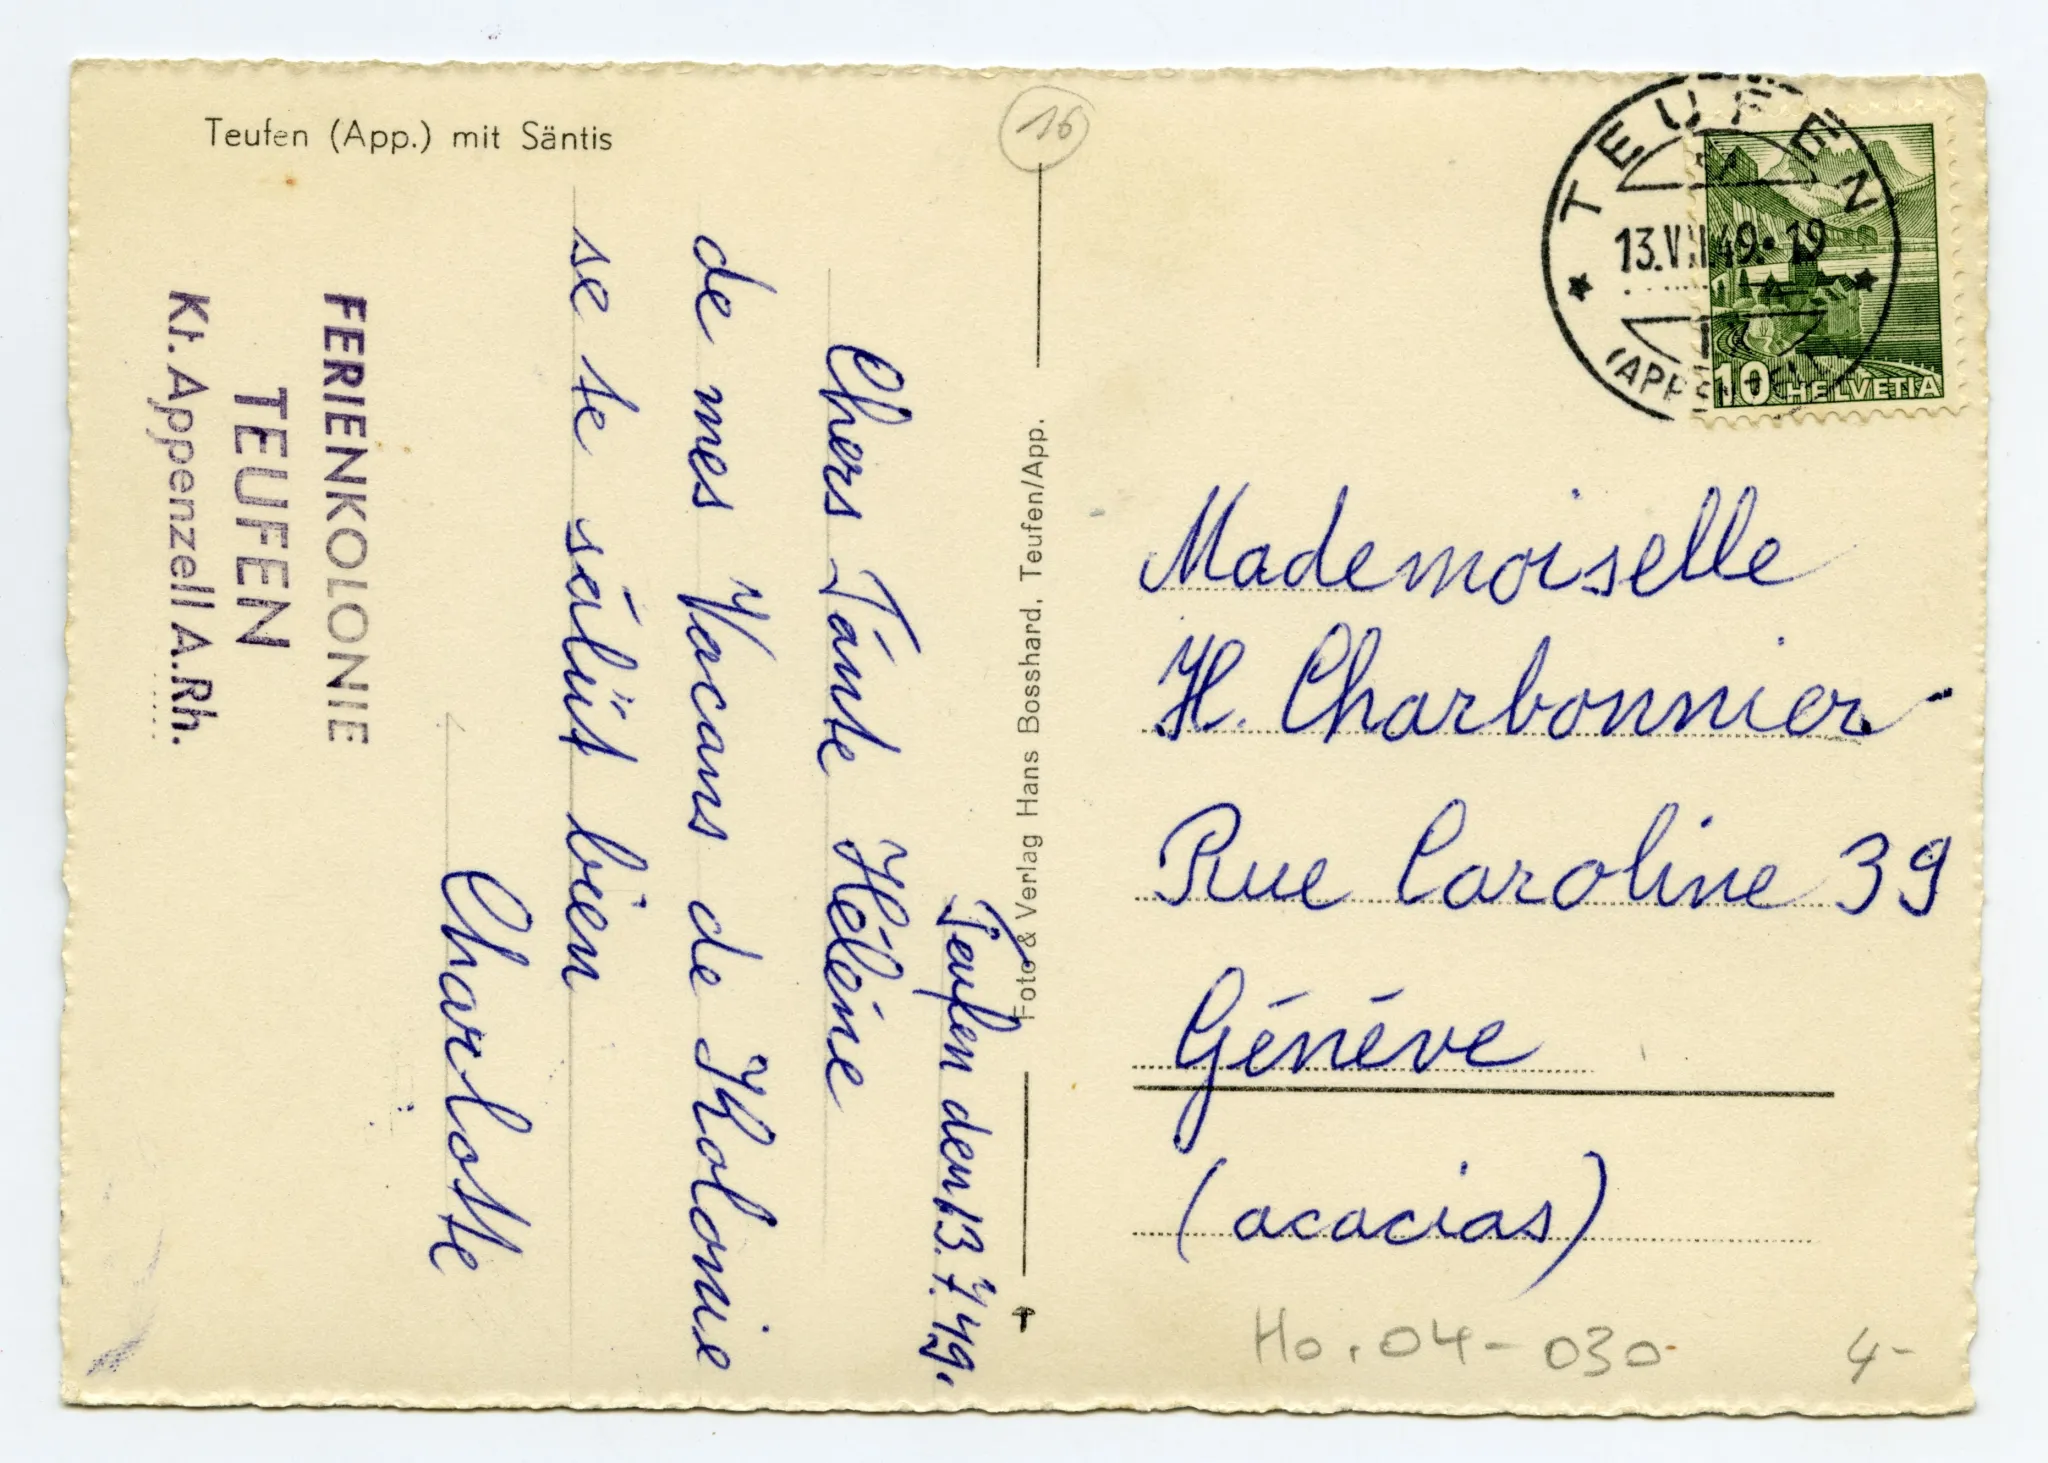 Teufen (App.) mit Säntis
16
Teufen den 13. 7. 49.
Chers Tánte Héléne
de mes Vacans de Kolonie
se te sálüt bien
Charlotte
FERIENKOLONIE
TEUFEN
Kt. Appenzell A.Rh.
Foto & Verlag Hans Bosshard, Teufen/App.
TEUFEN
13.VII.49.19
10 HELVETIA
Mademoiselle
H. Charbonnier
Rue Caroline 39
Généve
(acacias)
Ho. 04-030
4-